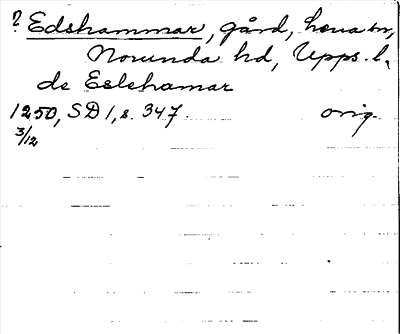 ? Edshammar, gård, Lena sn,
Norunda hd, Upps. l.
de Eslehamar
1250, SD 1, s. 347. orig.
3/12